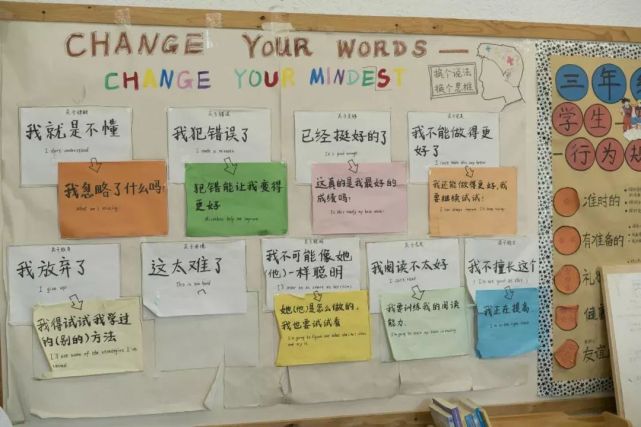 CHANGE YOUR WORDS —
CHANGE YOUR MINDEST
换个说法
换个思维
我就是不懂
I don't understand
我忽略了什么吗?
What am I missing
我犯错误了
I made a mistake
犯错能让我变得
更好
Mistakes help me improve
已经挺好的了
It's good enough
这真的是我最好的
成绩吗?
Is this really my best work?
我不能做得更
好了
我还能做得更好,我
要继续试试!
我放弃了
I give up
我得试试我学过
的(别的)方法
这太难了
This is too hard
我不可能像她
(他)一样聪明
她(他)是怎么做的,
我也要试试看
我阅读不太好
I can't read
我要训练我的阅读
能力.
我不擅长这个
我正在提高
三年
学生
行为规
准时的
有准备的
礼
健
友谊